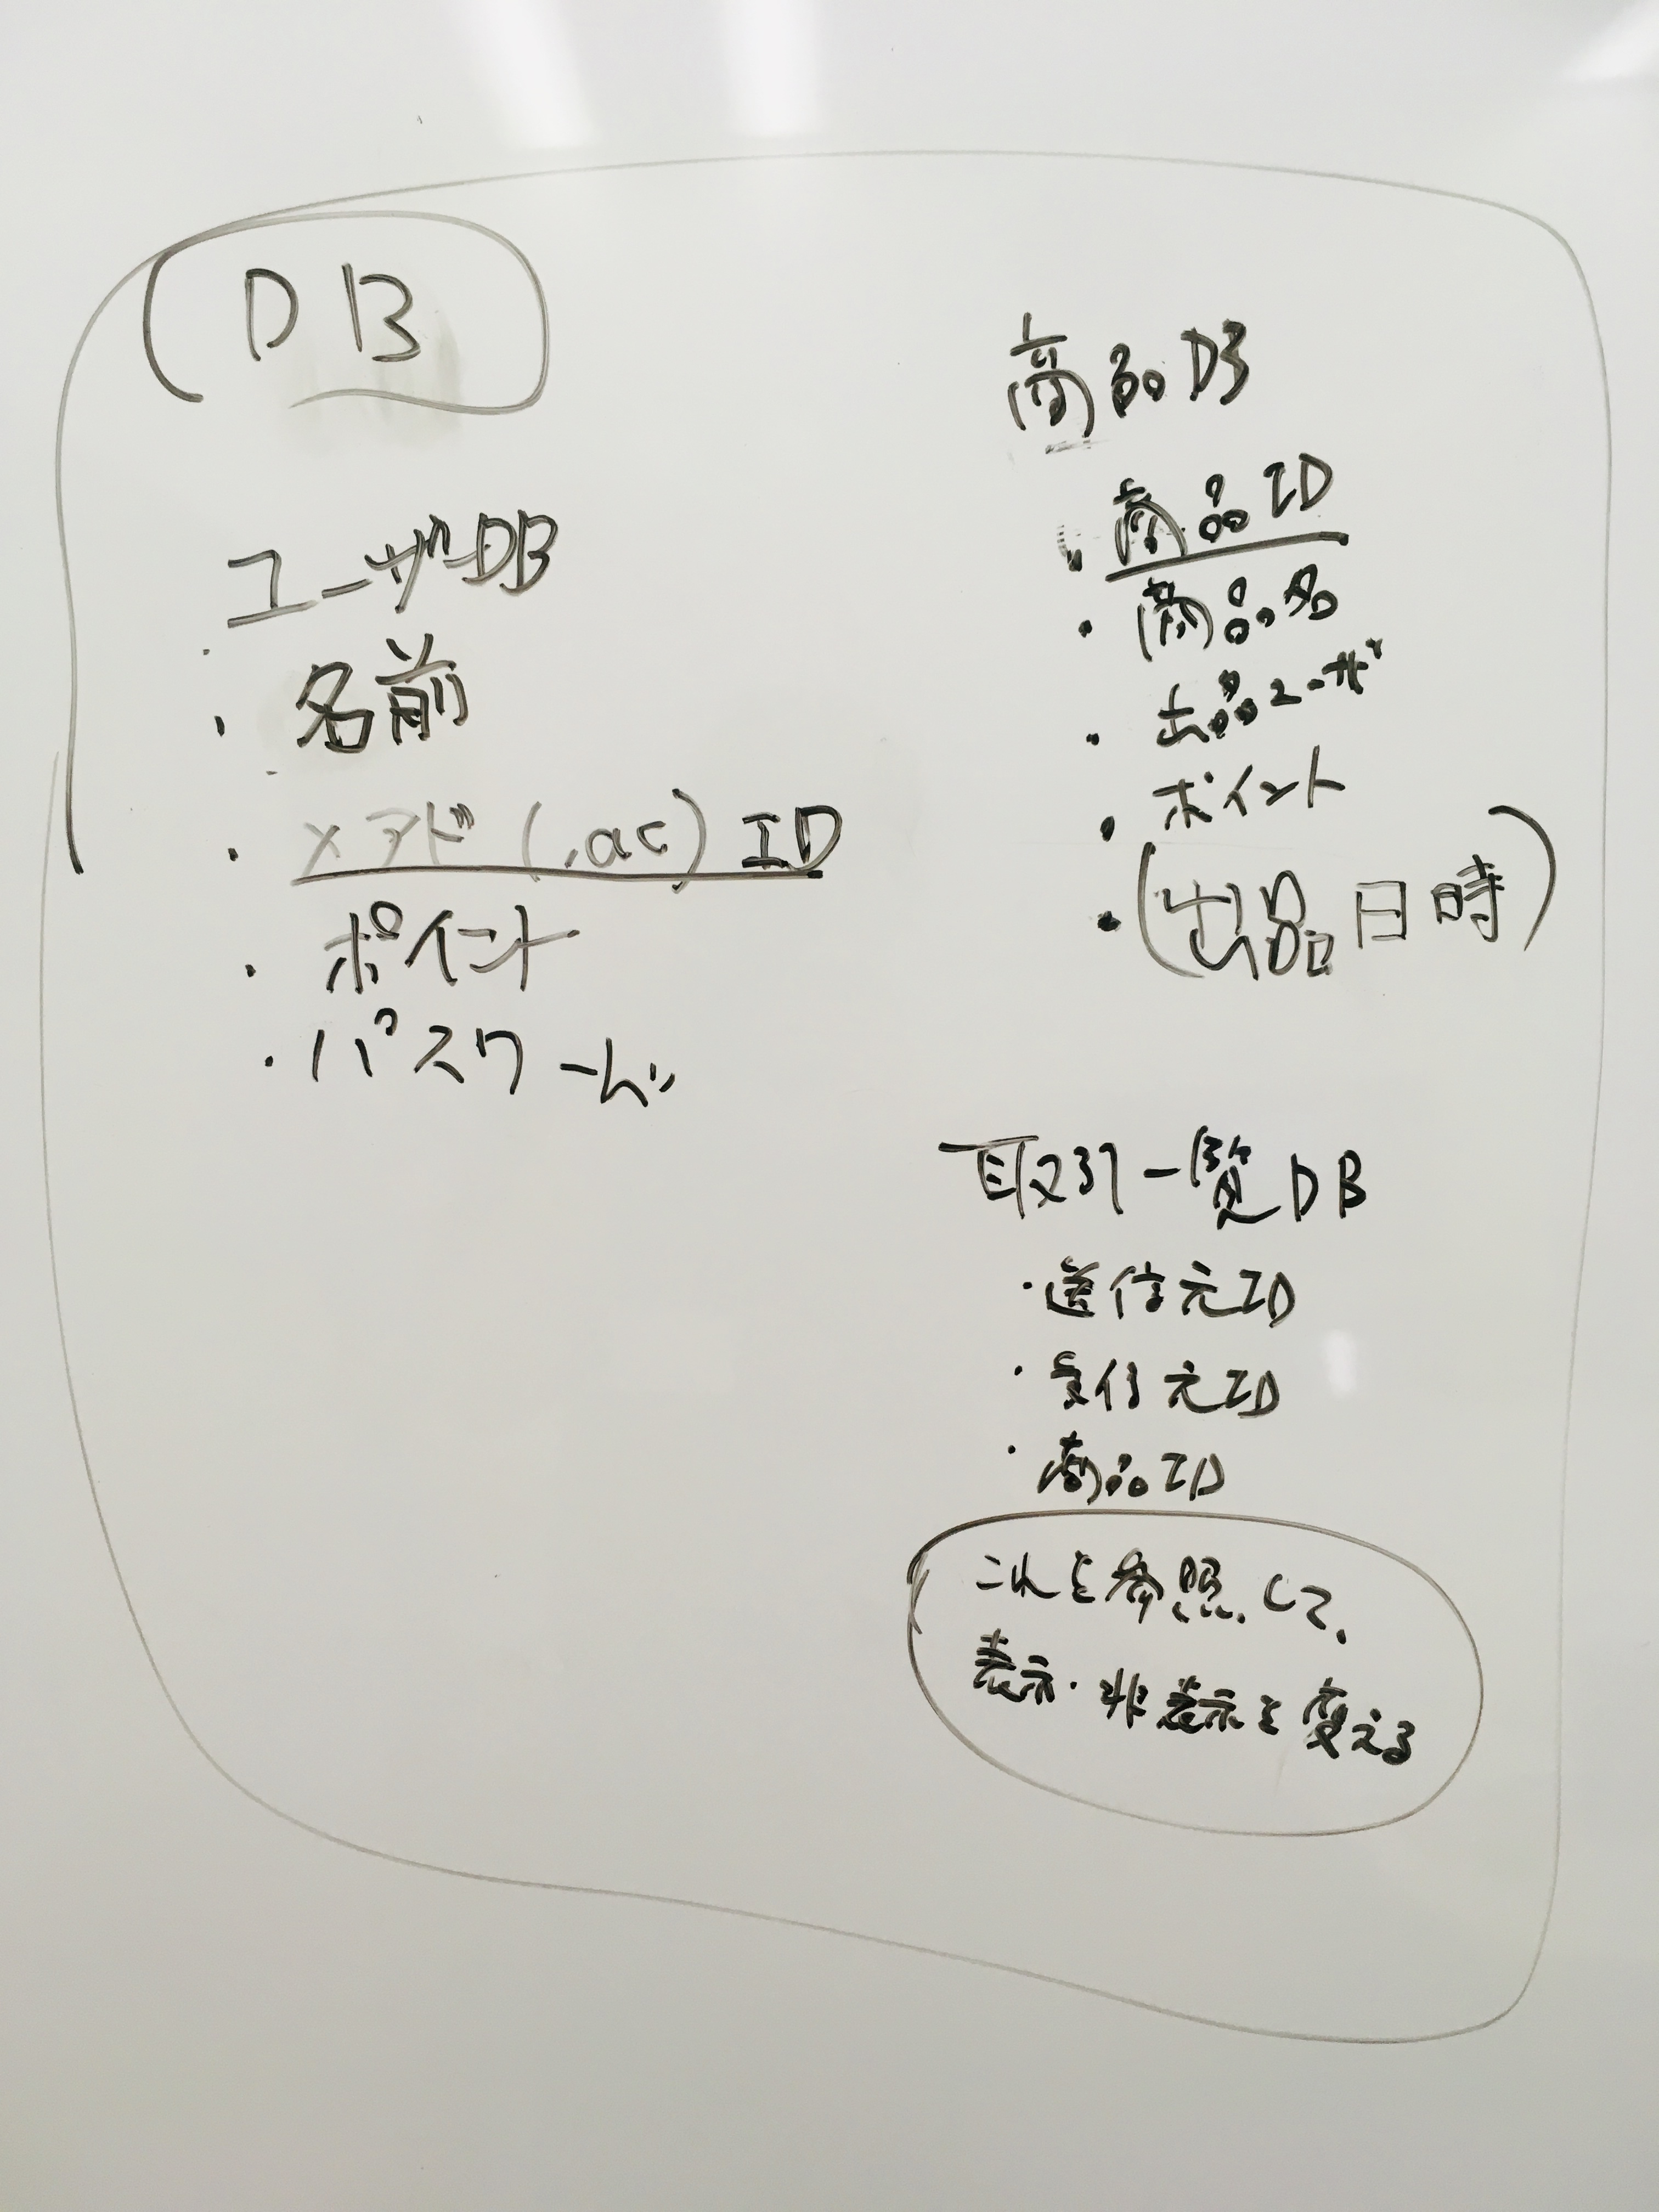 DB
ユーザDB
・名前
・メアド(.ac) ID
・ポイント
・パスワード
商品DB
・商品ID
・商品名
・出品ユーザ
・ポイント
・(出品日時)
取引一覧DB
・送信元ID
・受信元ID
・商品ID
これを参照して、
表示・非表示を変える